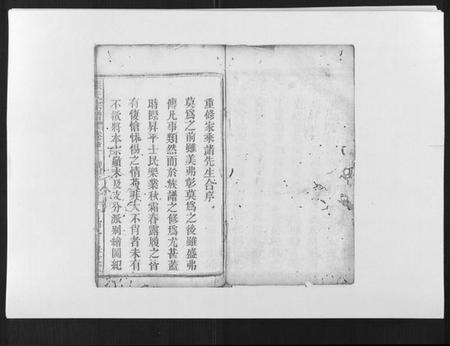 重修家乘諸先生合序
莫爲之前雖美弗彰莫爲之後雖盛弗
傳凡事類然而於族譜之修爲尤甚蓋
時際昇平士民樂業秋霜春露履之皆
有悽愴怵惕之情苟非大不肖者未有
不欲將本宗顚末及支分派別繪圖紀